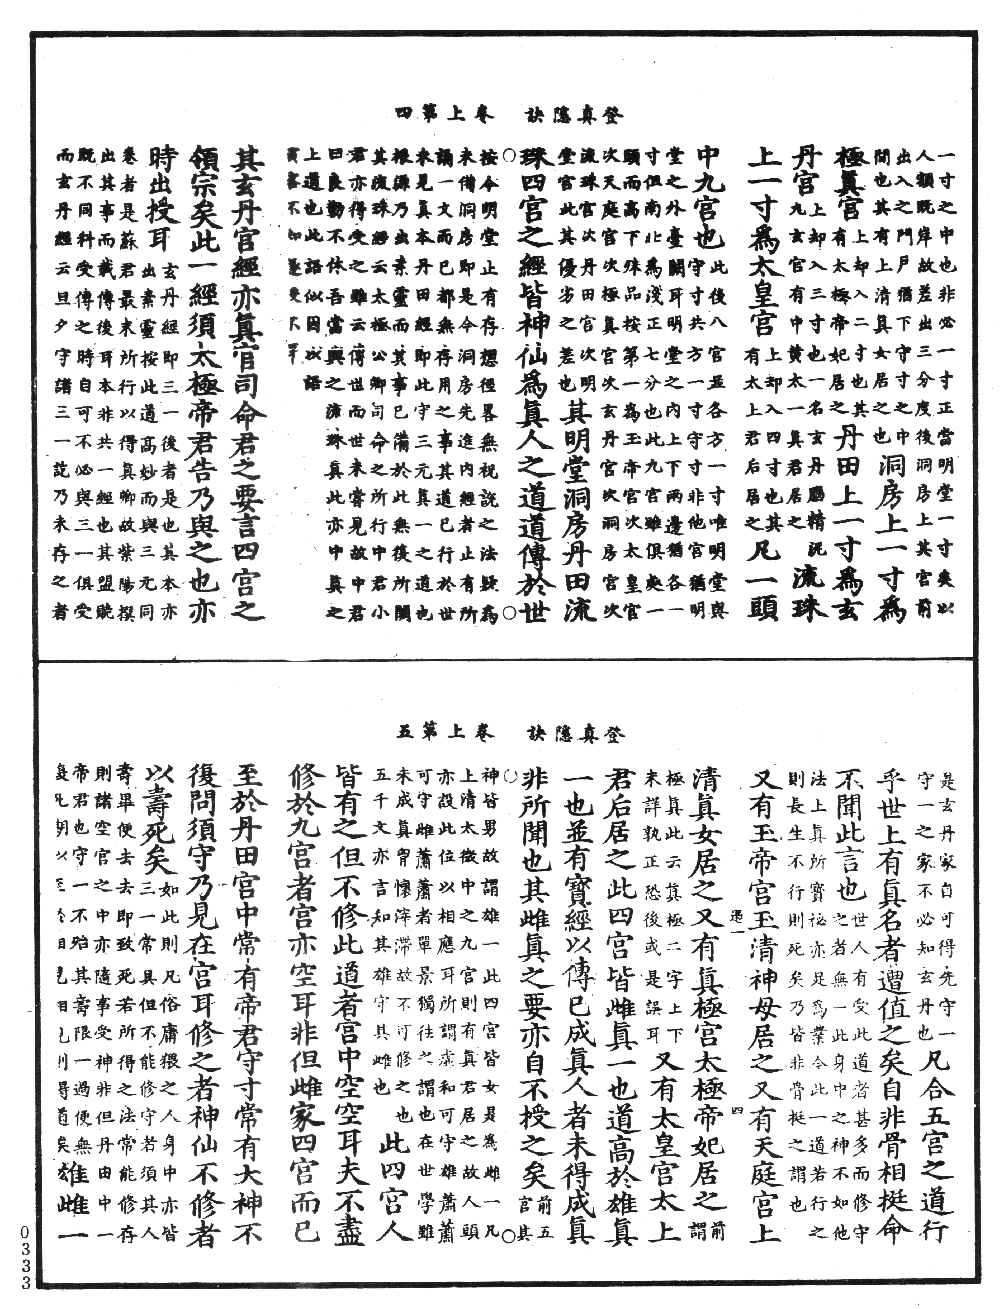 登真隱訣　卷上第四
一寸之中也非必一寸正當明堂一寸矣以
人額既岸故差出三分度後洞房上其宮前
出入之門戶猶下守寸之中
間也其有上清真女居之也
洞房上一寸為
極真宮
上却入二寸也其
有太極帝妃居之
丹田上一寸為玄
丹宮
上却入三寸也一名玄丹腦精泥
九玄宮有中黃太一真君居之
流珠
上一寸為太皇宮
上却入四寸也其
有太上君后居之
凡一頭
中九宮也
此後八宮並各方一寸唯明堂與
守寸共方一寸守寸非他宮猶明
堂之外臺闕耳明堂之內上下兩邊猶各一
寸但南北為淺正七分也此九宮雖俱處一
頭而高下殊品按第一為玉帝宮次太皇宮
次天庭宮次極真宮次玄丹宮次洞房宮次
流珠宮次丹田宮次明
堂宮此其優劣之差也
其明堂洞房丹田流
珠四宮之經皆神仙為真人之道道傳於世
○按今明堂止有存想徑畧無祝說之法疑為○
未備洞房即是今洞房先進內經者止有所
誦一文而已都無存用之事其道已行於世
未見真本丹田經即此守三元真一之道也
根源乃出素靈而其事已備於此無復所闕
其流珠經云太極公卿司命之所行中君小
君亦得受之雖云傳世而世未嘗見故中君
曰良勤不休吾當與之流珠真此亦中真之
上道也此語似因以語
賓客不如遂受不耳
其玄丹宮經亦真官司命君之要言四宮之
領宗矣此一經須太極帝君告乃與之也亦
時出授耳
玄丹經即三一後者是也其本亦
出素靈按此道高妙而與三元同
卷者是蘇君最末所行以得真卿故紫陽撰
出其事而載傳後耳本非共一經也其盟賧
既不同科受傳之時自可不必與三一俱受
而玄丹經云旦夕守諸三一訖乃末存之者
登真隱訣　卷上第五
是玄丹家自可得先守一
守一之家不必知玄丹也
凡合五宮之道行
乎世上有真名者遭值之矣自非骨相挺命
不聞此言也
世人有受此道者甚多而修守
之者無一此身中之神不如他
法上真所寶祕亦足為業今此一道若行之
則長生不行則死矣乃皆非骨挺之謂也
又有玉帝宮玉清神母居之又有天庭宮上
清真女居之又有真極宮太極帝妃居之
前
謂
極真此云真極二字上下
未詳孰正恐後或是誤耳
又有太皇宮太上
君后居之此四宮皆雌真一也道高於雄真
一也並有寶經以傳已成真人者未得成真
非所聞也其雌真之要亦自不授之矣
前五
宮其
○神皆男故謂雄一此四宮皆女是為雌一凡○
上清太微中之九宮則有真君居之故人頭
亦設此位以相應耳所謂虛和可守雄蕭蕭
可守雌蕭蕭者單景獨往之謂也在世學雖
未成真胷懷滓滯故不可修之也
五千文亦言知其雄守其雌也
此四宮人
皆有之但不修此道者宮中空空耳夫不盡
修於九宮者宮亦空耳非但雌家四宮而已
至於丹田宮中常有帝君守寸常有大神不
復問須守乃見在宮耳修之者神仙不修者
以壽死矣
如此則凡俗庸猥之人身中亦皆
三一常具但不能修守者須其人
壽畢便去去即致死若所得之法常能修存
則諸空宮之中亦隨事受神非但丹田中一
帝君也守一不殆其壽限一過便無
得道矣
雄雌一
0333